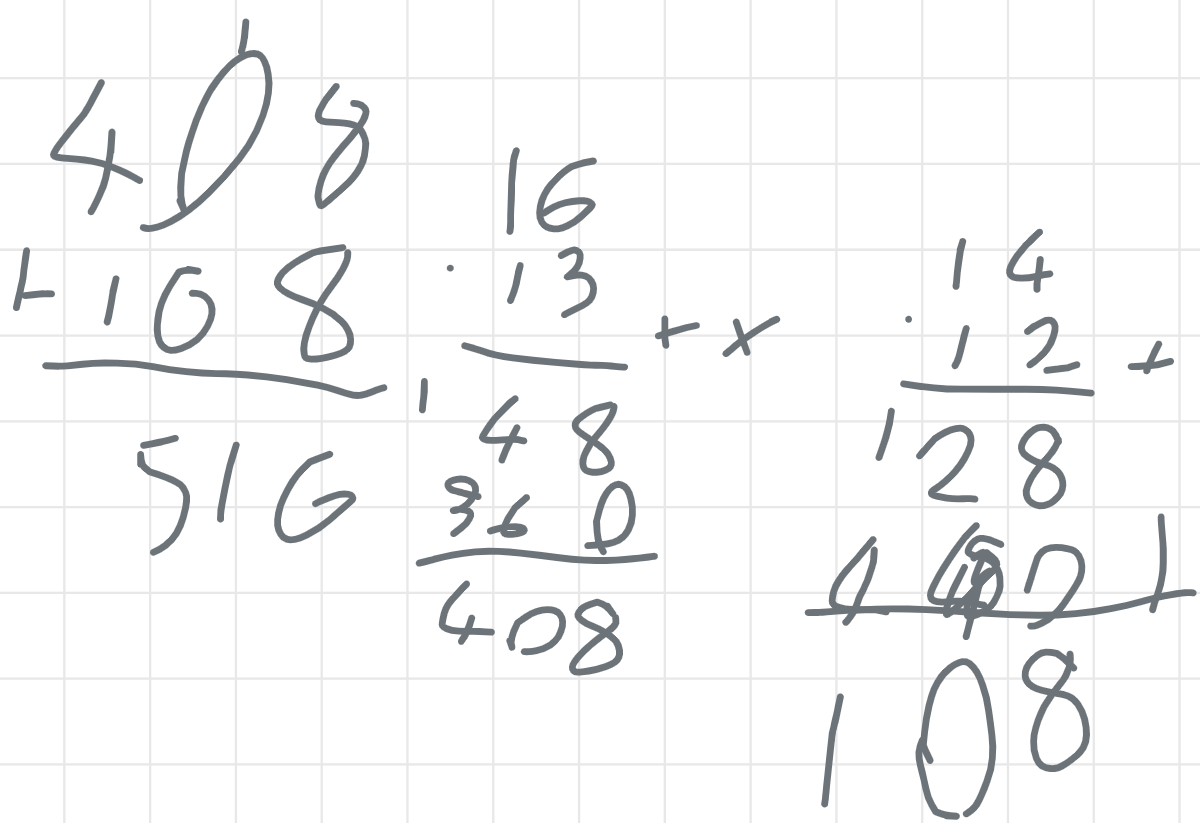 408
+ 108
516
16
· 13
+ x
48
360
408
14
· 12
+
128
108